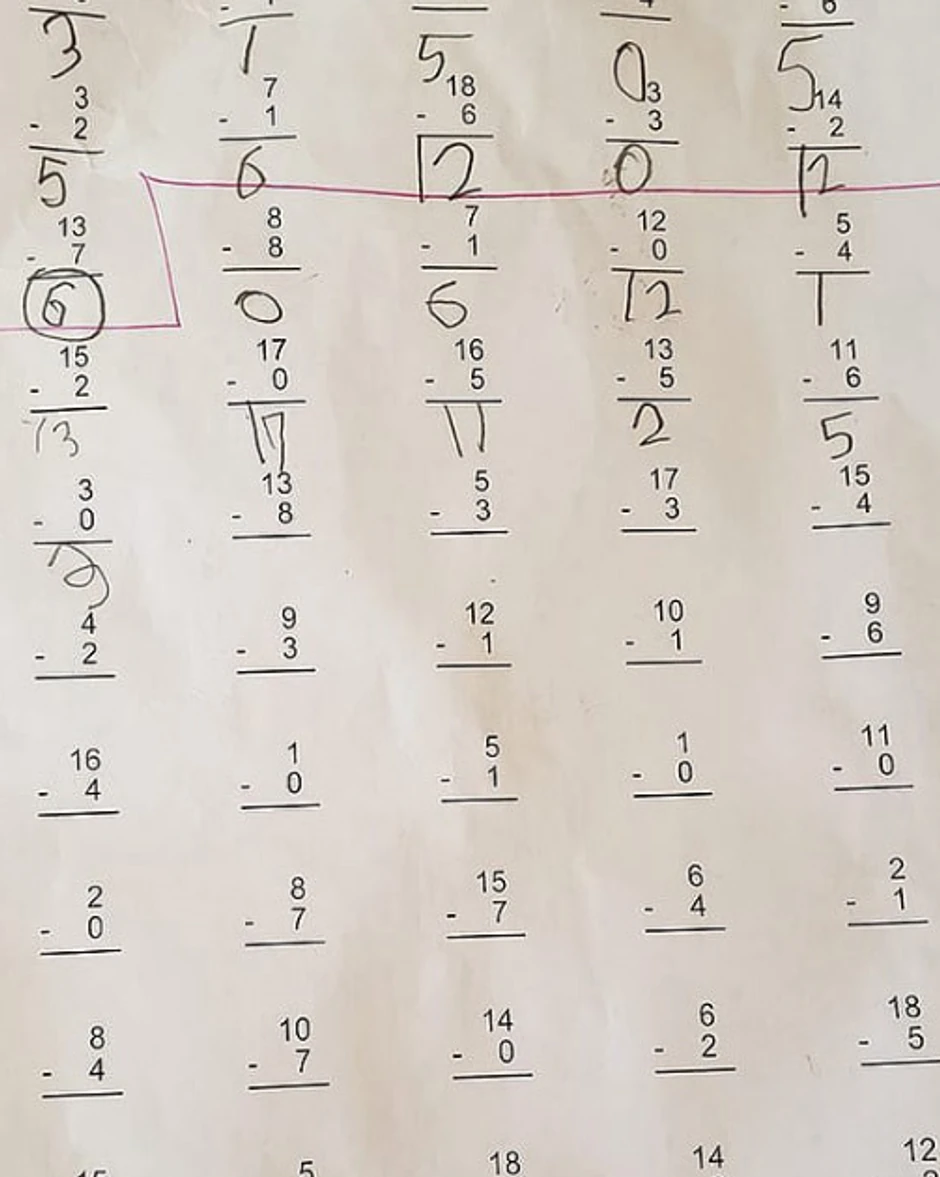 3 1 5 0 5
3 7 18 3 14
- 2 - 1 - 6 - 3 - 2
5 6 12 0 12
13 8 7 12 5
- 7 - 8 - 1 - 0 - 4
6 0 6 12 1
15 17 16 13 11
- 2 - 0 - 5 - 5 - 6
13 17 11 2 5
3 13 5 17 15
- 0 - 8 - 3 - 3 - 4
3
4 9 12 10 9
- 2 - 3 - 1 - 1 - 6
16 1 5 1 11
- 4 - 0 - 1 - 0 - 0
2 8 15 6 2
- 0 - 7 - 7 - 4 - 1
8 10 14 6 18
- 4 - 7 - 0 - 2 - 5
5 18 14 12